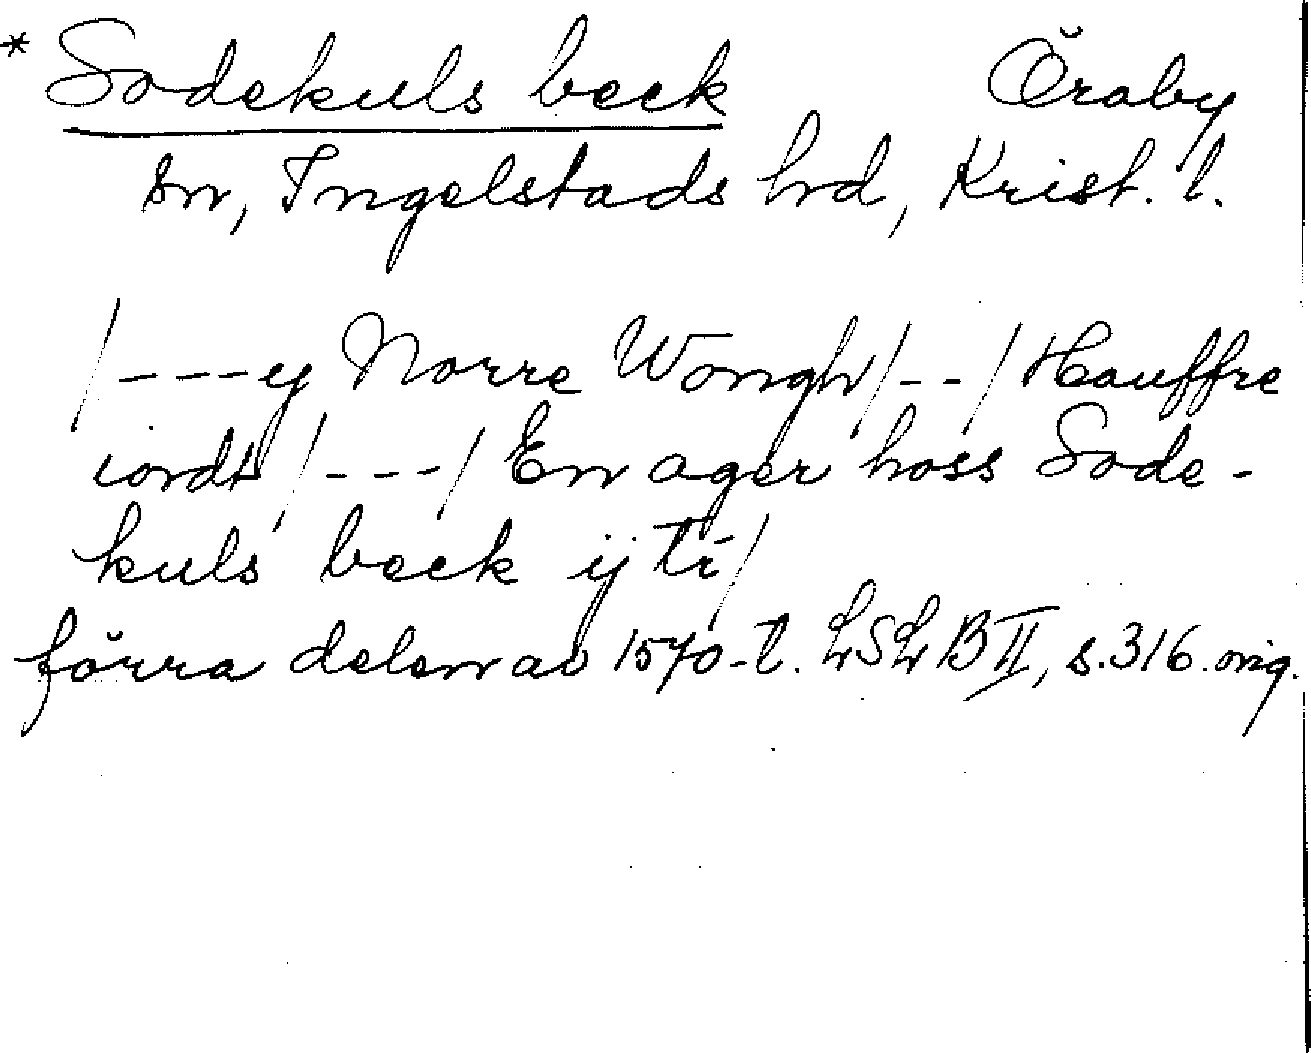 * Sodekuls beck Öraby
sn, Ingelstads hrd, Krist. l.
/---y Norre Wongh/--/ Hauffre
iordt/---/ En ager hoss Sode-
kuls beck ij ti/
förra delen av 1570-t. LSLB II, s. 316. orig.